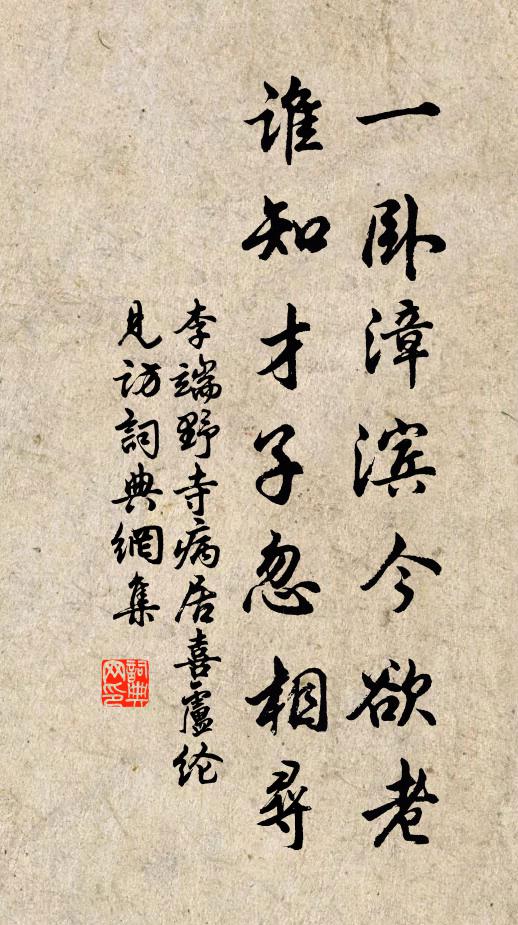 一卧漳滨今欲老
谁知才子忽相尋
李端野寺病居喜盧纶
見訪詞典網集
詞典
网印